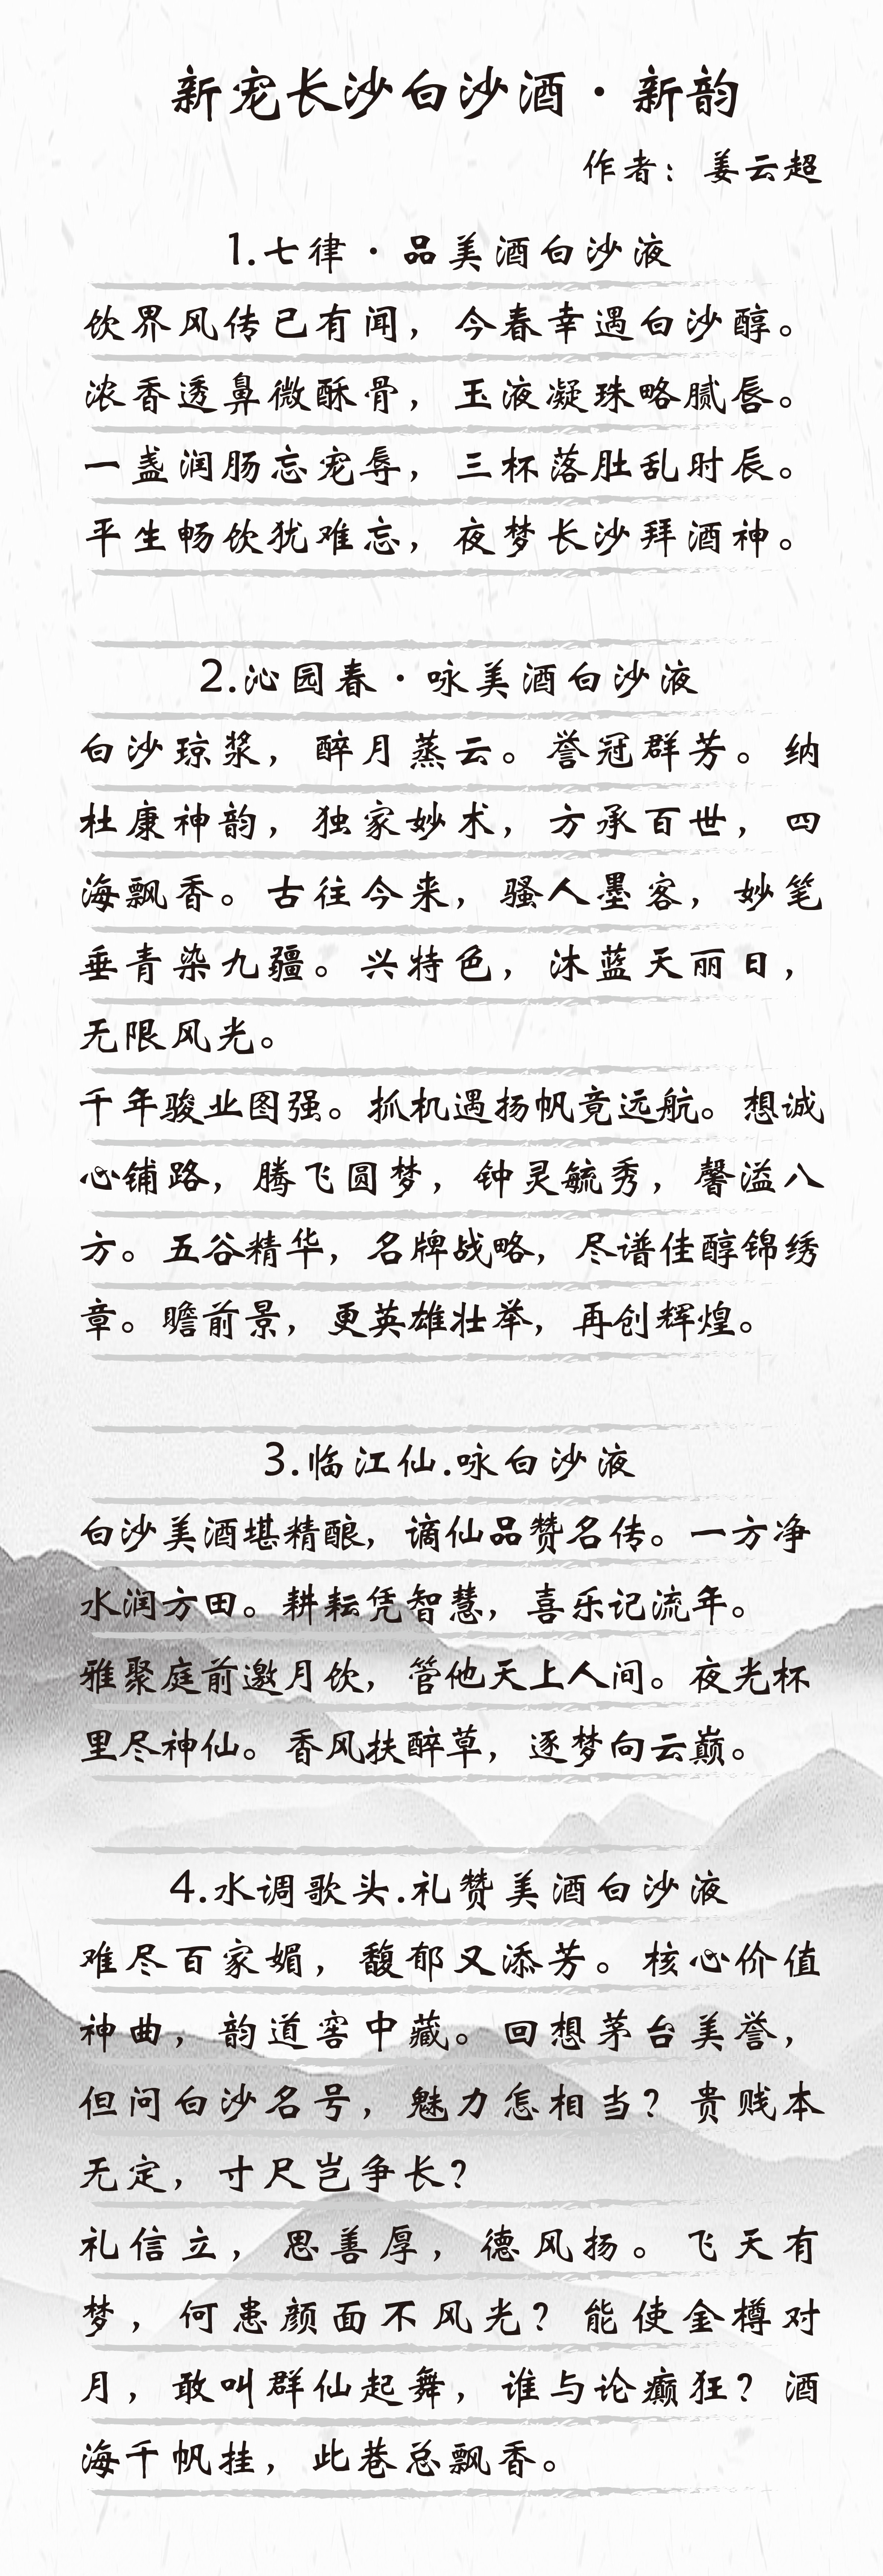 新宠长沙白沙酒·新韵
作者：姜云超
1.七律·品美酒白沙液
饮界风传已有闻，今春幸遇白沙醇。
浓香透鼻微酥骨，玉液凝珠略腻唇。
一盏润肠忘宠辱，三杯落肚乱时辰。
平生畅饮犹难忘，夜梦长沙拜酒神。
2.沁园春·咏美酒白沙液
白沙琼浆，醉月蒸云。誉冠群芳。纳
杜康神韵，独家妙术，方承百世，四
海飘香。古往今来，骚人墨客，妙笔
垂青染九疆。兴特色，沐蓝天丽日，
无限风光。
千年骏业图强。抓机遇扬帆竟远航。想诚
心铺路，腾飞圆梦，钟灵毓秀，馨溢八
方。五谷精华，名牌战略，尽谱佳醇锦绣
章。瞻前景，更英雄壮举，再创辉煌。
3.临江仙.咏白沙液
白沙美酒堪精酿，谪仙品赞名传。一方净
水润方田。耕耘凭智慧，喜乐记流年。
雅聚庭前邀月饮，管他天上人间。夜光杯
里尽神仙。香风扶醉草，逐梦向云巅。
4.水调歌头.礼赞美酒白沙液
难尽百家媚，馥郁又添芳。核心价值
神曲，韵道窖中藏。回想茅台美誉，
但问白沙名号，魅力怎相当？贵贱本
无定，寸尺岂争长？
礼信立，思善厚，德风扬。飞天有
梦，何患颜面不风光？能使金樽对
月，敢叫群仙起舞，谁与论癫狂？酒
海千帆挂，此巷总飘香。